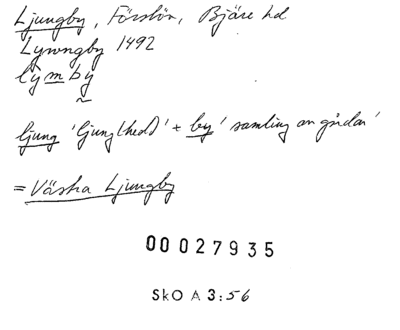 Ljungby, Förslöv, Bjäre hd
Lywngby 1492
lÿmbÿ
ljung 'ljung(hed)' + by 'samling av gårdar'
= Västra Ljungby
00027935
SkO A 3:56